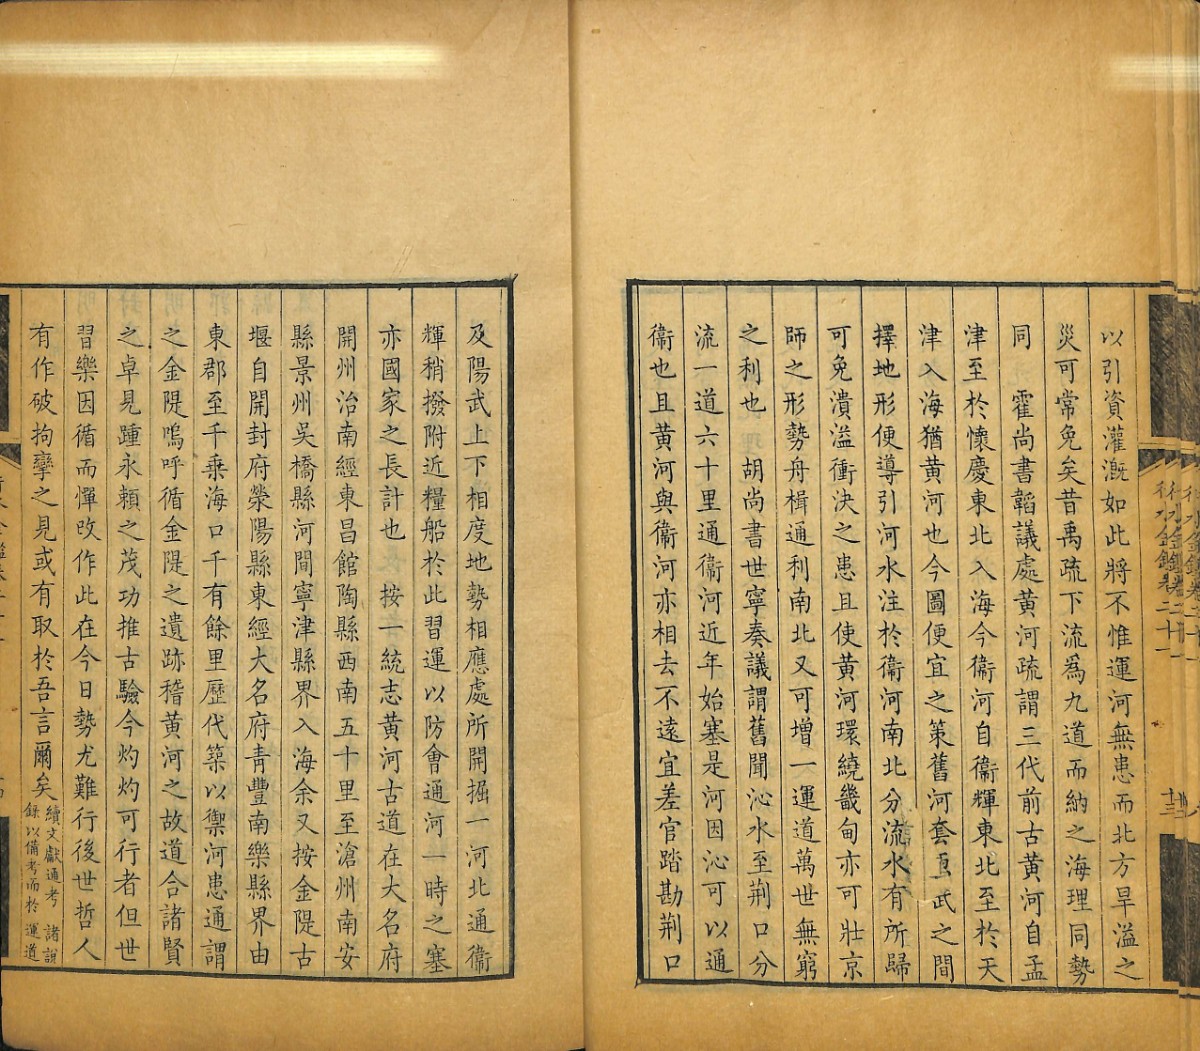 以引資灌漑如此將不惟運河無患而北方旱溢之
災可常免矣昔禹疏下流爲九道而納之海理同勢
同　霍尚書韜議處黄河疏謂三代前古黄河自孟
津至於懷慶東北入海今衞河自衞輝東北至於天
津入海猶黄河也今圖便宜之策舊河套　武之間
擇地形便導引河水注於衞河南北分流水有所歸
可免潰溢衝決之患且使黄河環繞畿甸亦可壯京
師之形勢舟楫通利南北又可增一運道萬世無窮
之利也　胡尚書世寧奏議謂舊聞沁水至荆口分
流一道六十里通衞河近年始塞是河因沁可以通
衞也且黄河與衞河亦相去不遠宜差官踏勘荆口
及陽武上下相度地勢相應處所開掘一河北通衞
輝稍撥附近糧船於此習運以防會通河一時之塞
亦國家之長計也　按一統志黄河古道在大名府
開州治南經東昌館陶縣西南五十里至滄州南安
縣景州吳橋縣河間寧津縣界入海余又按金隄古
堰自開封府滎陽縣東經大名府青豐南樂縣界由
東郡至千乗海口千有餘里歷代築以禦河患通謂
之金隄嗚呼循金隄之遺跡稽黄河之故道合諸賢
之卓見踵永賴之茂功推古驗今灼灼可行者但世
習樂因循而憚改作此在今日勢尤難行後世哲人
有作破拘攣之見或有取於吾言爾矣
續文獻通考　諸説
録以備考而於　運道
行水金鑑卷二十一
十三